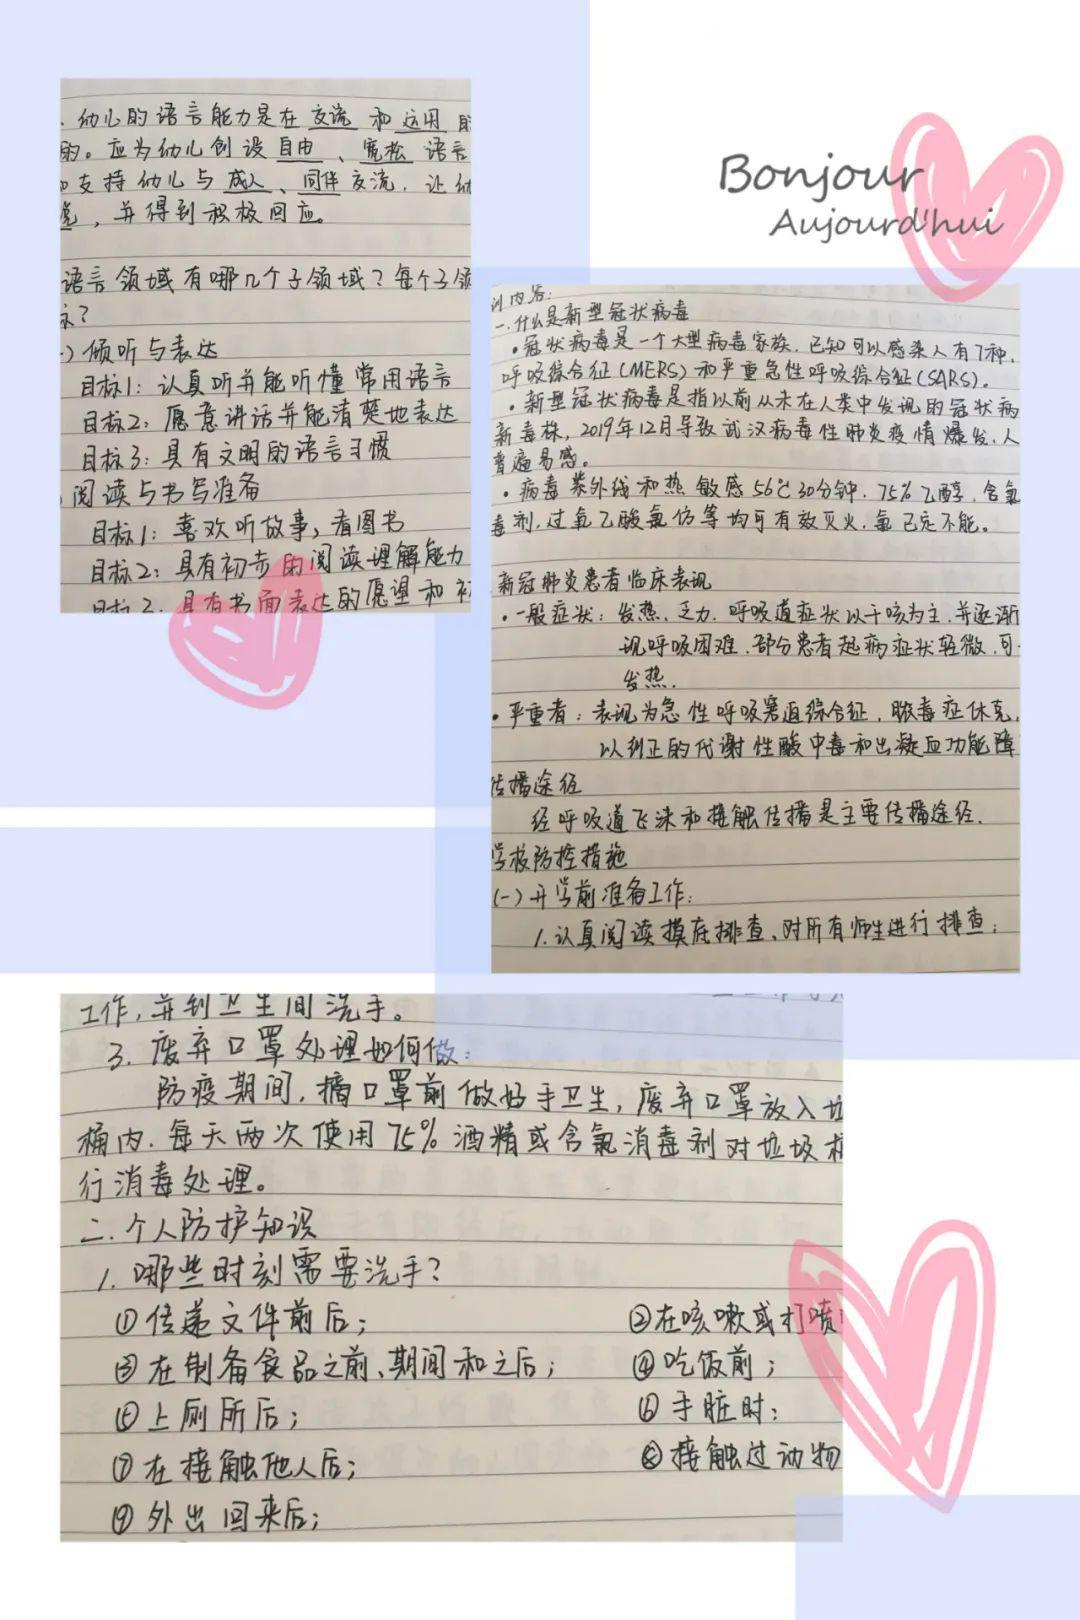 Bonjour
Aujourd'hui
. 幼儿的语言能力是在 交流 和 运用
的。应为幼儿创设 自由 、 宽松 语言
支持幼儿与 成人 、 同伴 交流, 让幼
, 并得到积极回应。
语言领域有哪几个子领域? 每个子领
标?
) 倾听与表达
目标1: 认真听并能听懂常用语言
目标2: 愿意讲话并能清楚地表达
目标3: 具有文明的语言习惯
阅读与书写准备
目标1: 喜欢听故事, 看图书
目标2: 具有初步的阅读理解能力
目标3: 具有书面表达的愿望和初
训内容:
一. 什么是新型冠状病毒
·冠状病毒是一个大型病毒家族. 已知可以感染人有7种.
呼吸综合征(MERS)和严重急性呼吸综合征(SARS)。
·新型冠状病毒是指以前从未在人类中发现的冠状病
新毒株, 2019年12月导致武汉病毒性肺炎疫情爆发, 人
普遍易感。
·病毒 紫外线和热敏感 56℃ 30分钟. 75%乙醇. 含氯
毒剂. 过氧乙酸氯仿等均可有效灭火. 氯已定不能。
新冠肺炎患者临床表现
·一般症状: 发热. 乏力. 呼吸道症状以干咳为主. 并逐渐
现呼吸困难. 部分患者起病症状轻微. 可
发热.
·严重者: 表现为急性呼吸窘迫综合征, 脓毒症休克.
以纠正的代谢性酸中毒和出凝血功能障
传播途径
经呼吸道飞沫和接触传播是主要传播途径.
学校防控措施
(一)开学前准备工作:
1. 认真阅读摸底排查、对所有师生进行排查;
工作, 并到卫生间洗手。
3. 废弃口罩处理如何做:
防疫期间, 摘口罩前做好手卫生, 废弃口罩放入垃
桶内. 每天两次使用75%酒精或含氯消毒剂对垃圾桶
行消毒处理。
二. 个人防护知识
1. 哪些时刻需要洗手?
①传递文件前后; ②在咳嗽或打喷
③在制备食品之前、期间和之后; ④吃饭前;
⑤上厕所后; ⑥手脏时;
⑦在接触他人后; ⑧接触过动物
⑨外出回来后;